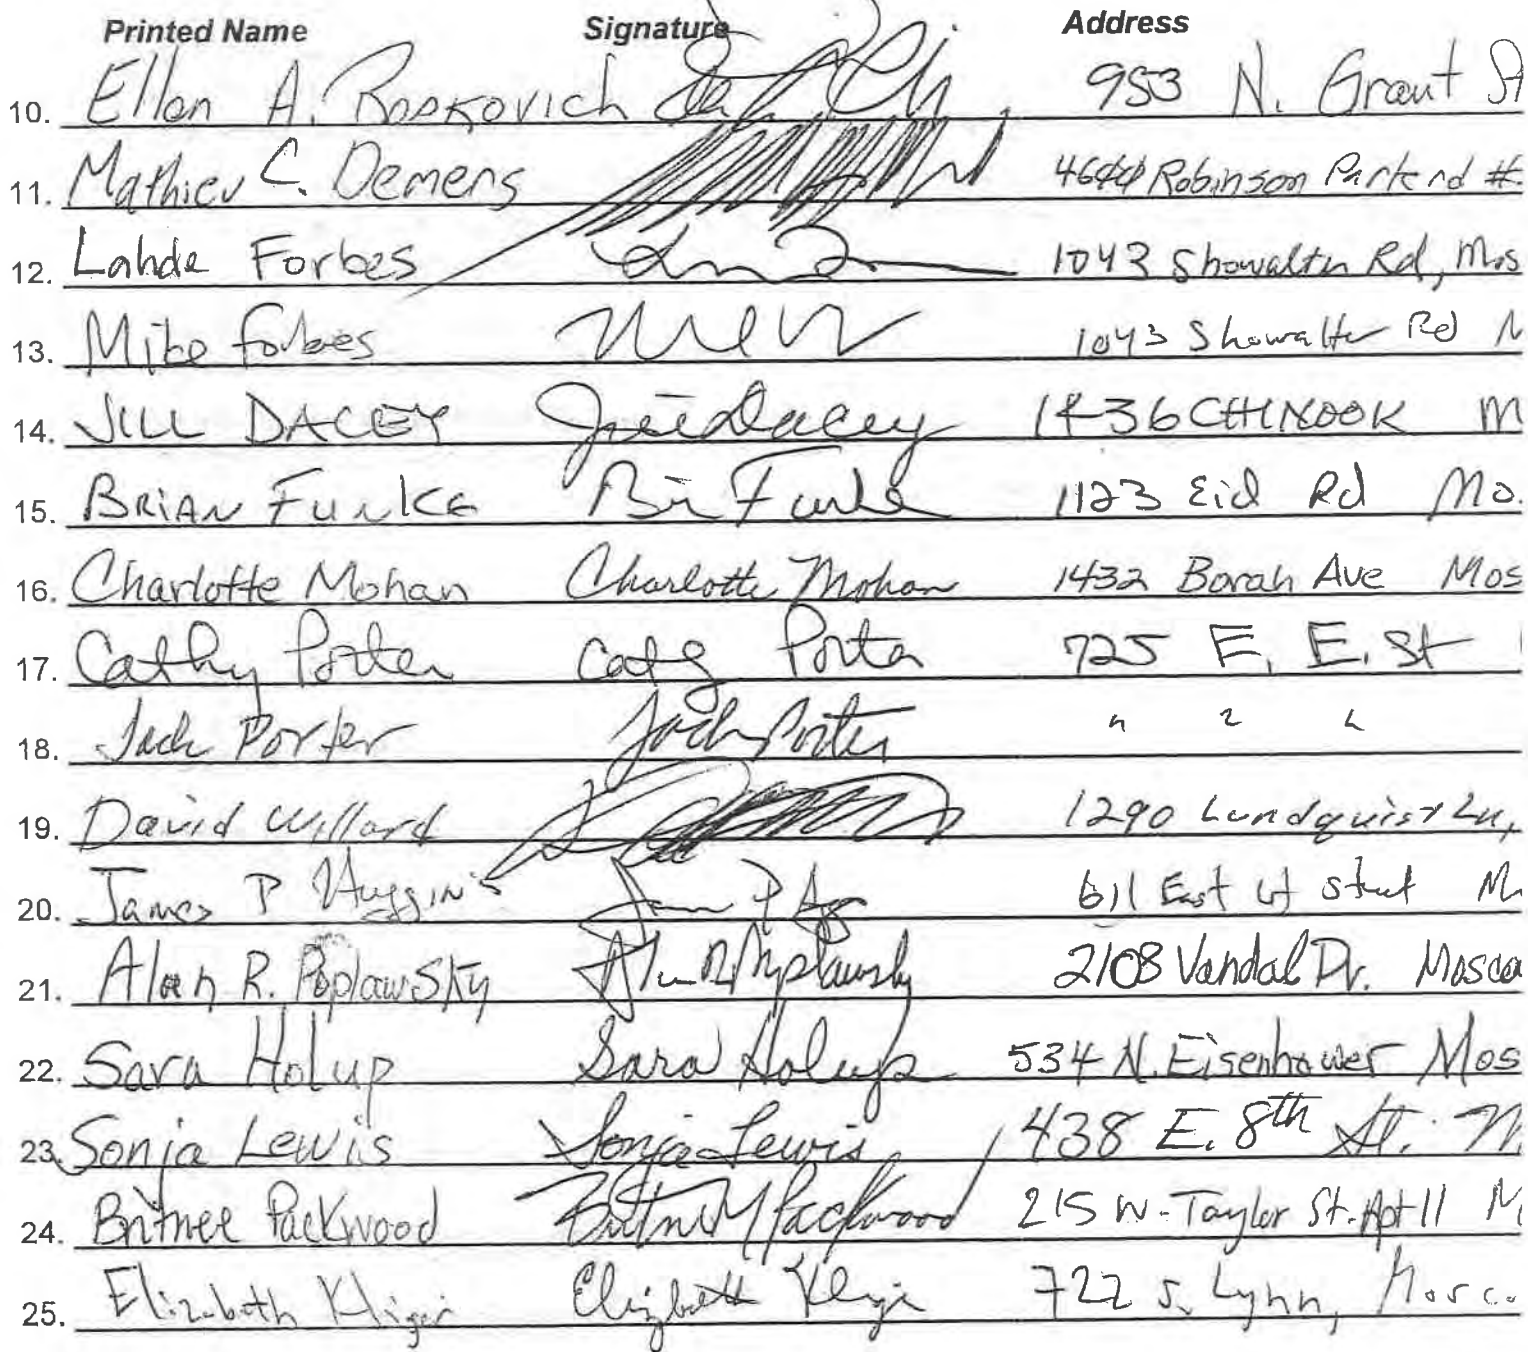 Printed Name Signature Address
10. Ellen A. Roskovich 953 N. Grant St
11. Mathieu C. Demers Robinson Park rd #
12. Lahde Forbes 1043 Showalter Rd, Mos
13. Mike Forbes 1043 Showalter Rd M
14. JILL DACEY Jill Dacey 1436 CHINOOK M
15. BRIAN FUNKE Bri Funke 1123 Eid Rd Mo.
16. Charlotte Mohan Charlotte Mohan 1432 Borah Ave Mos
17. Cathy Porter Cathy Porter 725 E. E. St
18. Jack Porter Jack Porter " " "
19. David Willard 1290 Lundquist Ln,
20. James P Huggins 611 East Street M
21. Alan R. Poplawsky Alan R. Poplawsky 2108 Vandal Dr. Moscow
22. Sara Holup Sara Holup 534 N. Eisenhower Mos
23. Sonja Lewis Sonja Lewis 438 E. 8th St. M
24. Britnee Packwood Britnee Packwood 215 W. Taylor St. Apt 11 M
25. Elizabeth Kliger Elizabeth Kliger 722 S. Lynn, Mosco